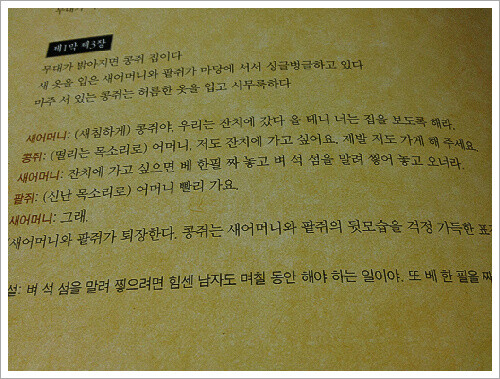 제1막 제3장
무대가 밝아지면 콩쥐 집이다
새 옷을 입은 새어머니와 팥쥐가 마당에 서서 싱글벙글하고 있다
마주 서 있는 콩쥐는 허름한 옷을 입고 시무룩하다
새어머니: (새침하게) 콩쥐야, 우리는 잔치에 갔다 올 테니 너는 집을 보도록 해라.
콩쥐: (떨리는 목소리로) 어머니, 저도 잔치에 가고 싶어요. 제발 저도 가게 해 주세요.
새어머니: 잔치에 가고 싶으면 베 한필 짜 놓고 벼 석 섬을 말려 찧어 놓고 오너라.
팥쥐: (신난 목소리로) 어머니 빨리 가요.
새어머니: 그래.
새어머니와 팥쥐가 퇴장한다. 콩쥐는 새어머니와 팥쥐의 뒷모습을 걱정 가득한 표
설: 벼 석 섬을 말려 찧으려면 힘센 남자도 며칠 동안 해야 하는 일이야. 또 베 한 필을 짜